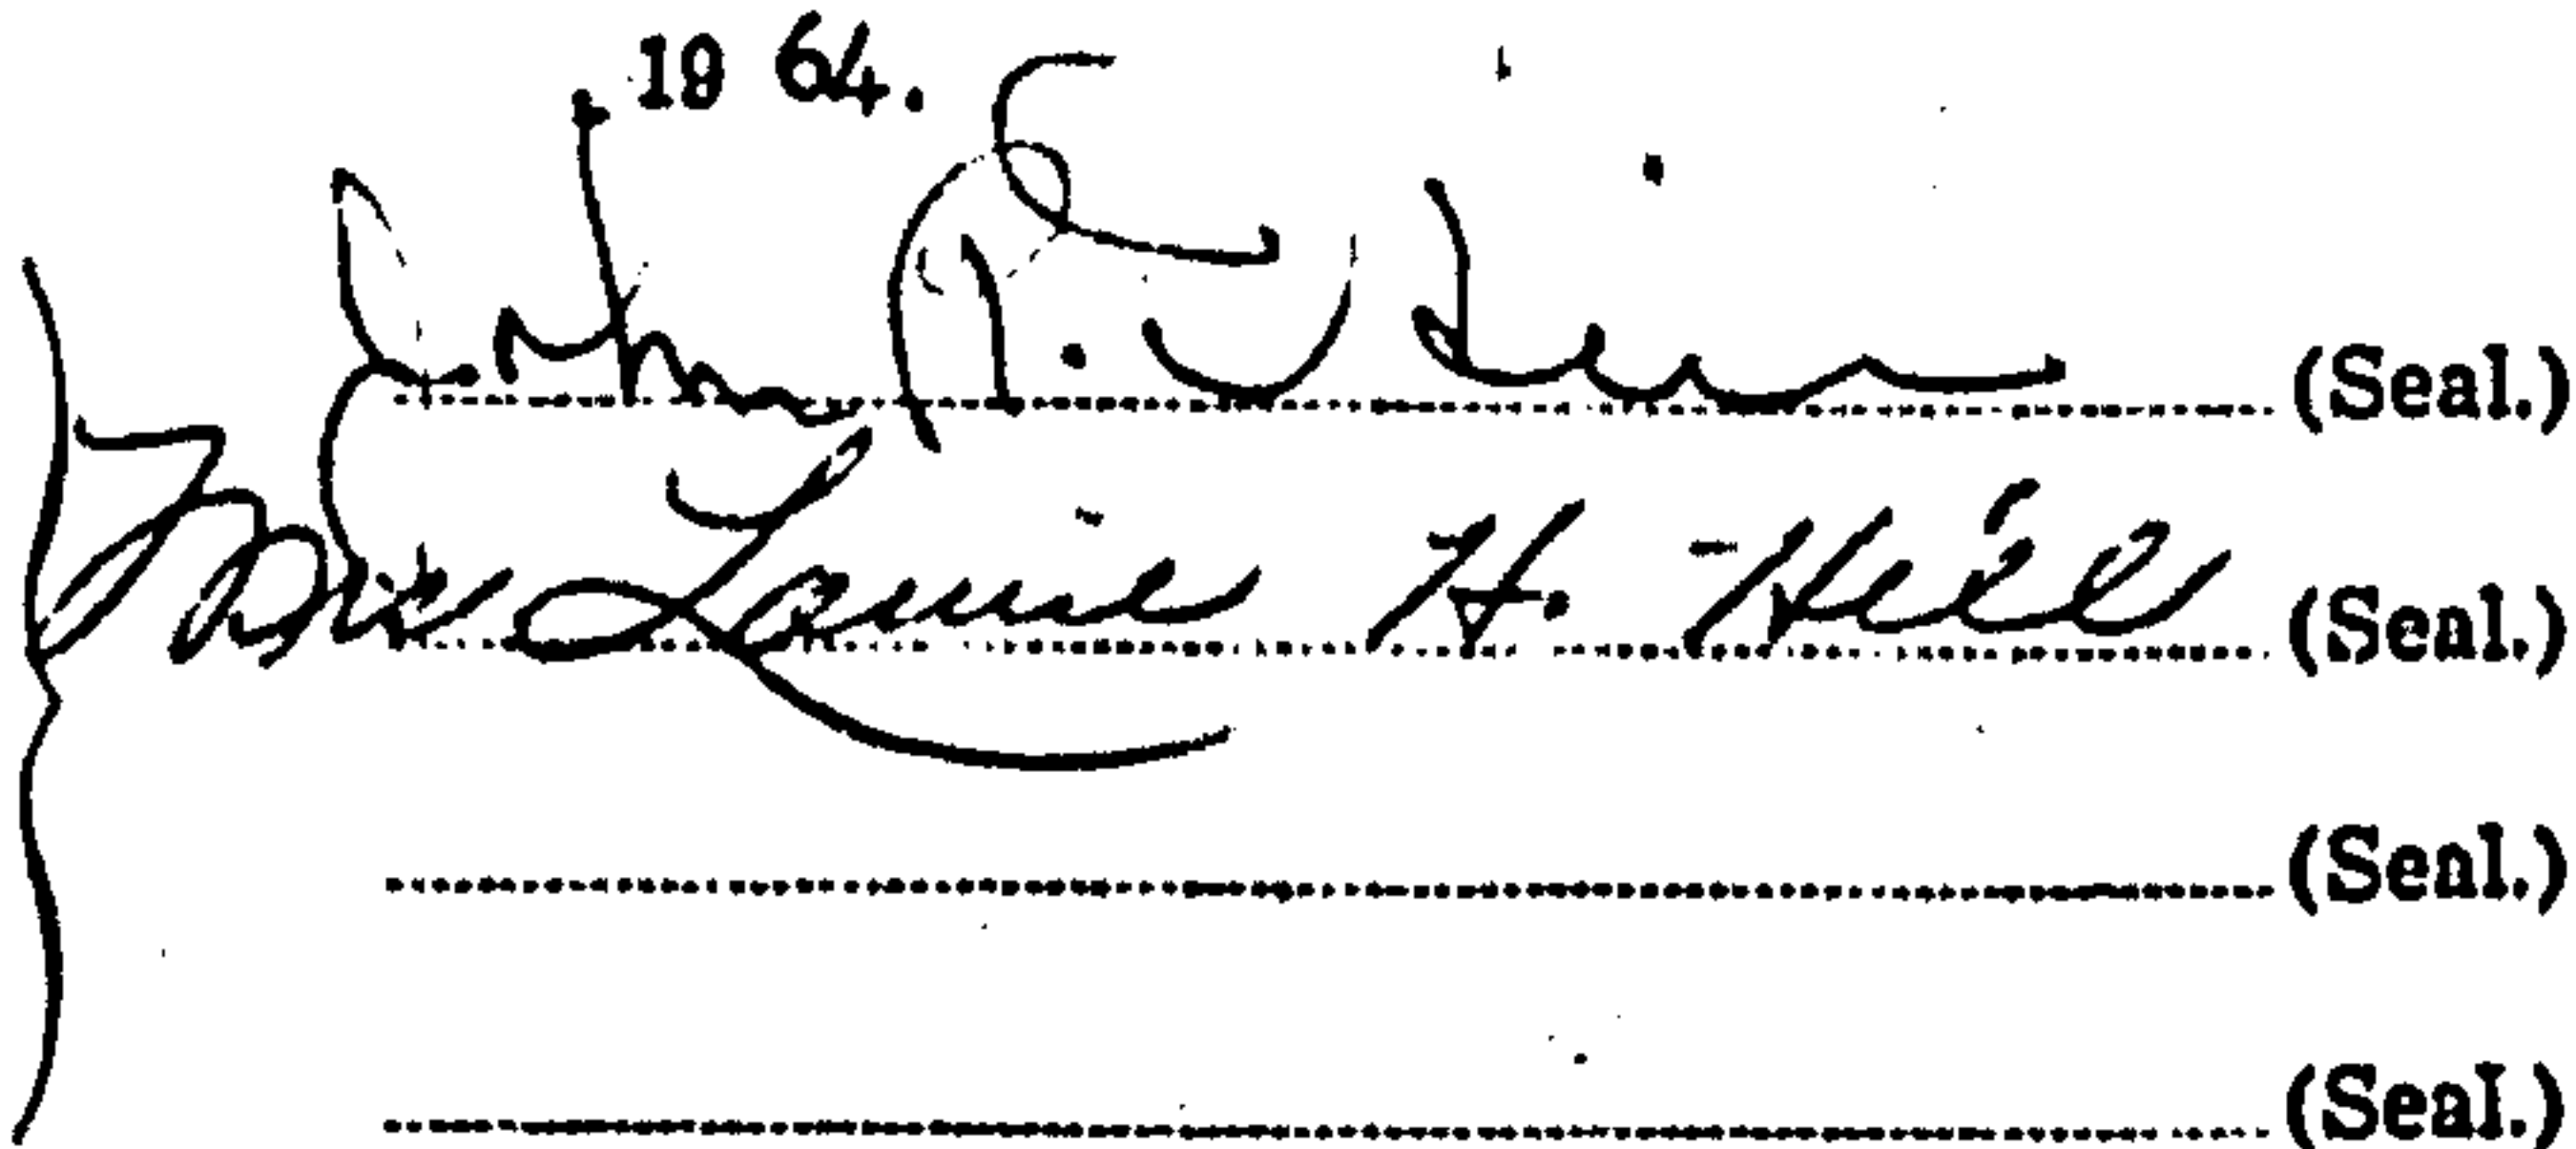 , 1964.
John (Seal.)
Mrs Louie H. Hill (Seal.)
(Seal.)
(Seal.)